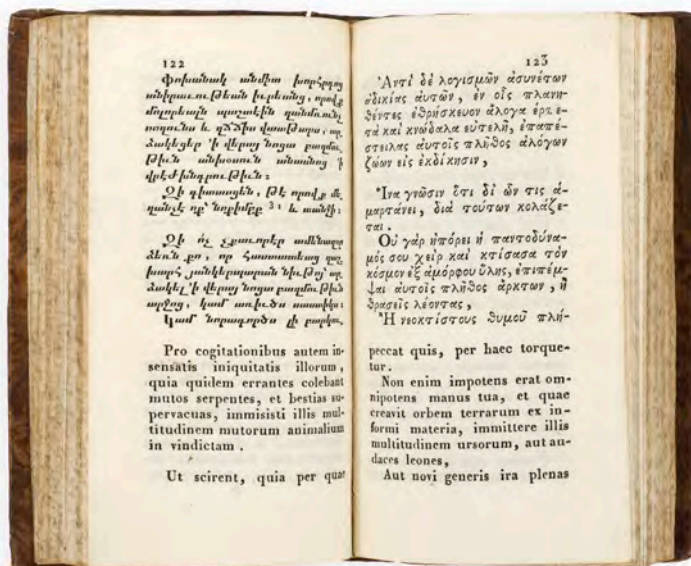 122
Փոխանակ անմիտ խորհրդոց
անիրաւութեան իւրեանց, որովք
մոլորեալք պաշտէին զանմռունչ
սողունս և զճճիս վատթարս, ար
ձակեցեր ՚ի վերայ նոցա բազմու
թիւն անխօսուն անասնոց ՚ի
վրէժխնդրութիւն։
Զի գիտասցեն, թէ որովք մե
ղանչէ ոք՝ նոքիմբք 31 և տանջի։
Զի ոչ չքաւորէր ամենազօր
ձեռն քո, որ հաստատեաց զաշ
խարհ յանկերպարան նիւթոյ՝ ար
ձակել ՚ի վերայ նոցա բազմութիւն
արջոց, կամ առիւծս սաստիկս։
Կամ նորագործս լի բարկու
Pro cogitationibus autem in-
sensatis iniquitatis illorum,
quia quidem errantes colebant
mutos serpentes, et bestias su-
pervacuas, immisisti illis mul-
titudinem mutorum animalium
in vindictam .
Ut scirent, quia per quae
123
Ἀντὶ δὲ λογισμῶν ἀσυνέτων
ἀδικίας αὐτῶν, ἐν οἷς πλανη-
θέντες ἐθρήσκευον ἄλογα ἑρπε-
τὰ καὶ κνώδαλα εὐτελῆ, ἐπαπέ-
στειλας αὐτοῖς πλῆθος ἀλόγων
ζώων εἰς ἐκδίκησιν,
Ἵνα γνῶσιν ὅτι δι' ὧν τις ἁ-
μαρτάνει, διὰ τούτων κολάζε-
ται .
Οὐ γὰρ ἠπόρει ἡ παντοδύνα-
μός σου χεὶρ καὶ κτίσασα τὸν
κόσμον ἐξ ἀμόρφου ὕλης, ἐπιπέμ-
ψαι αὐτοῖς πλῆθος ἄρκτων, ἢ
θρασεῖς λέοντας,
Ἢ νεοκτίστους θυμοῦ πλή-
peccat quis, per haec torque-
tur.
Non enim impotens erat om-
nipotens manus tua, et quae
creavit orbem terrarum ex in-
formi materia, immittere illis
multitudinem ursorum, aut au-
daces leones,
Aut novi generis ira plenas